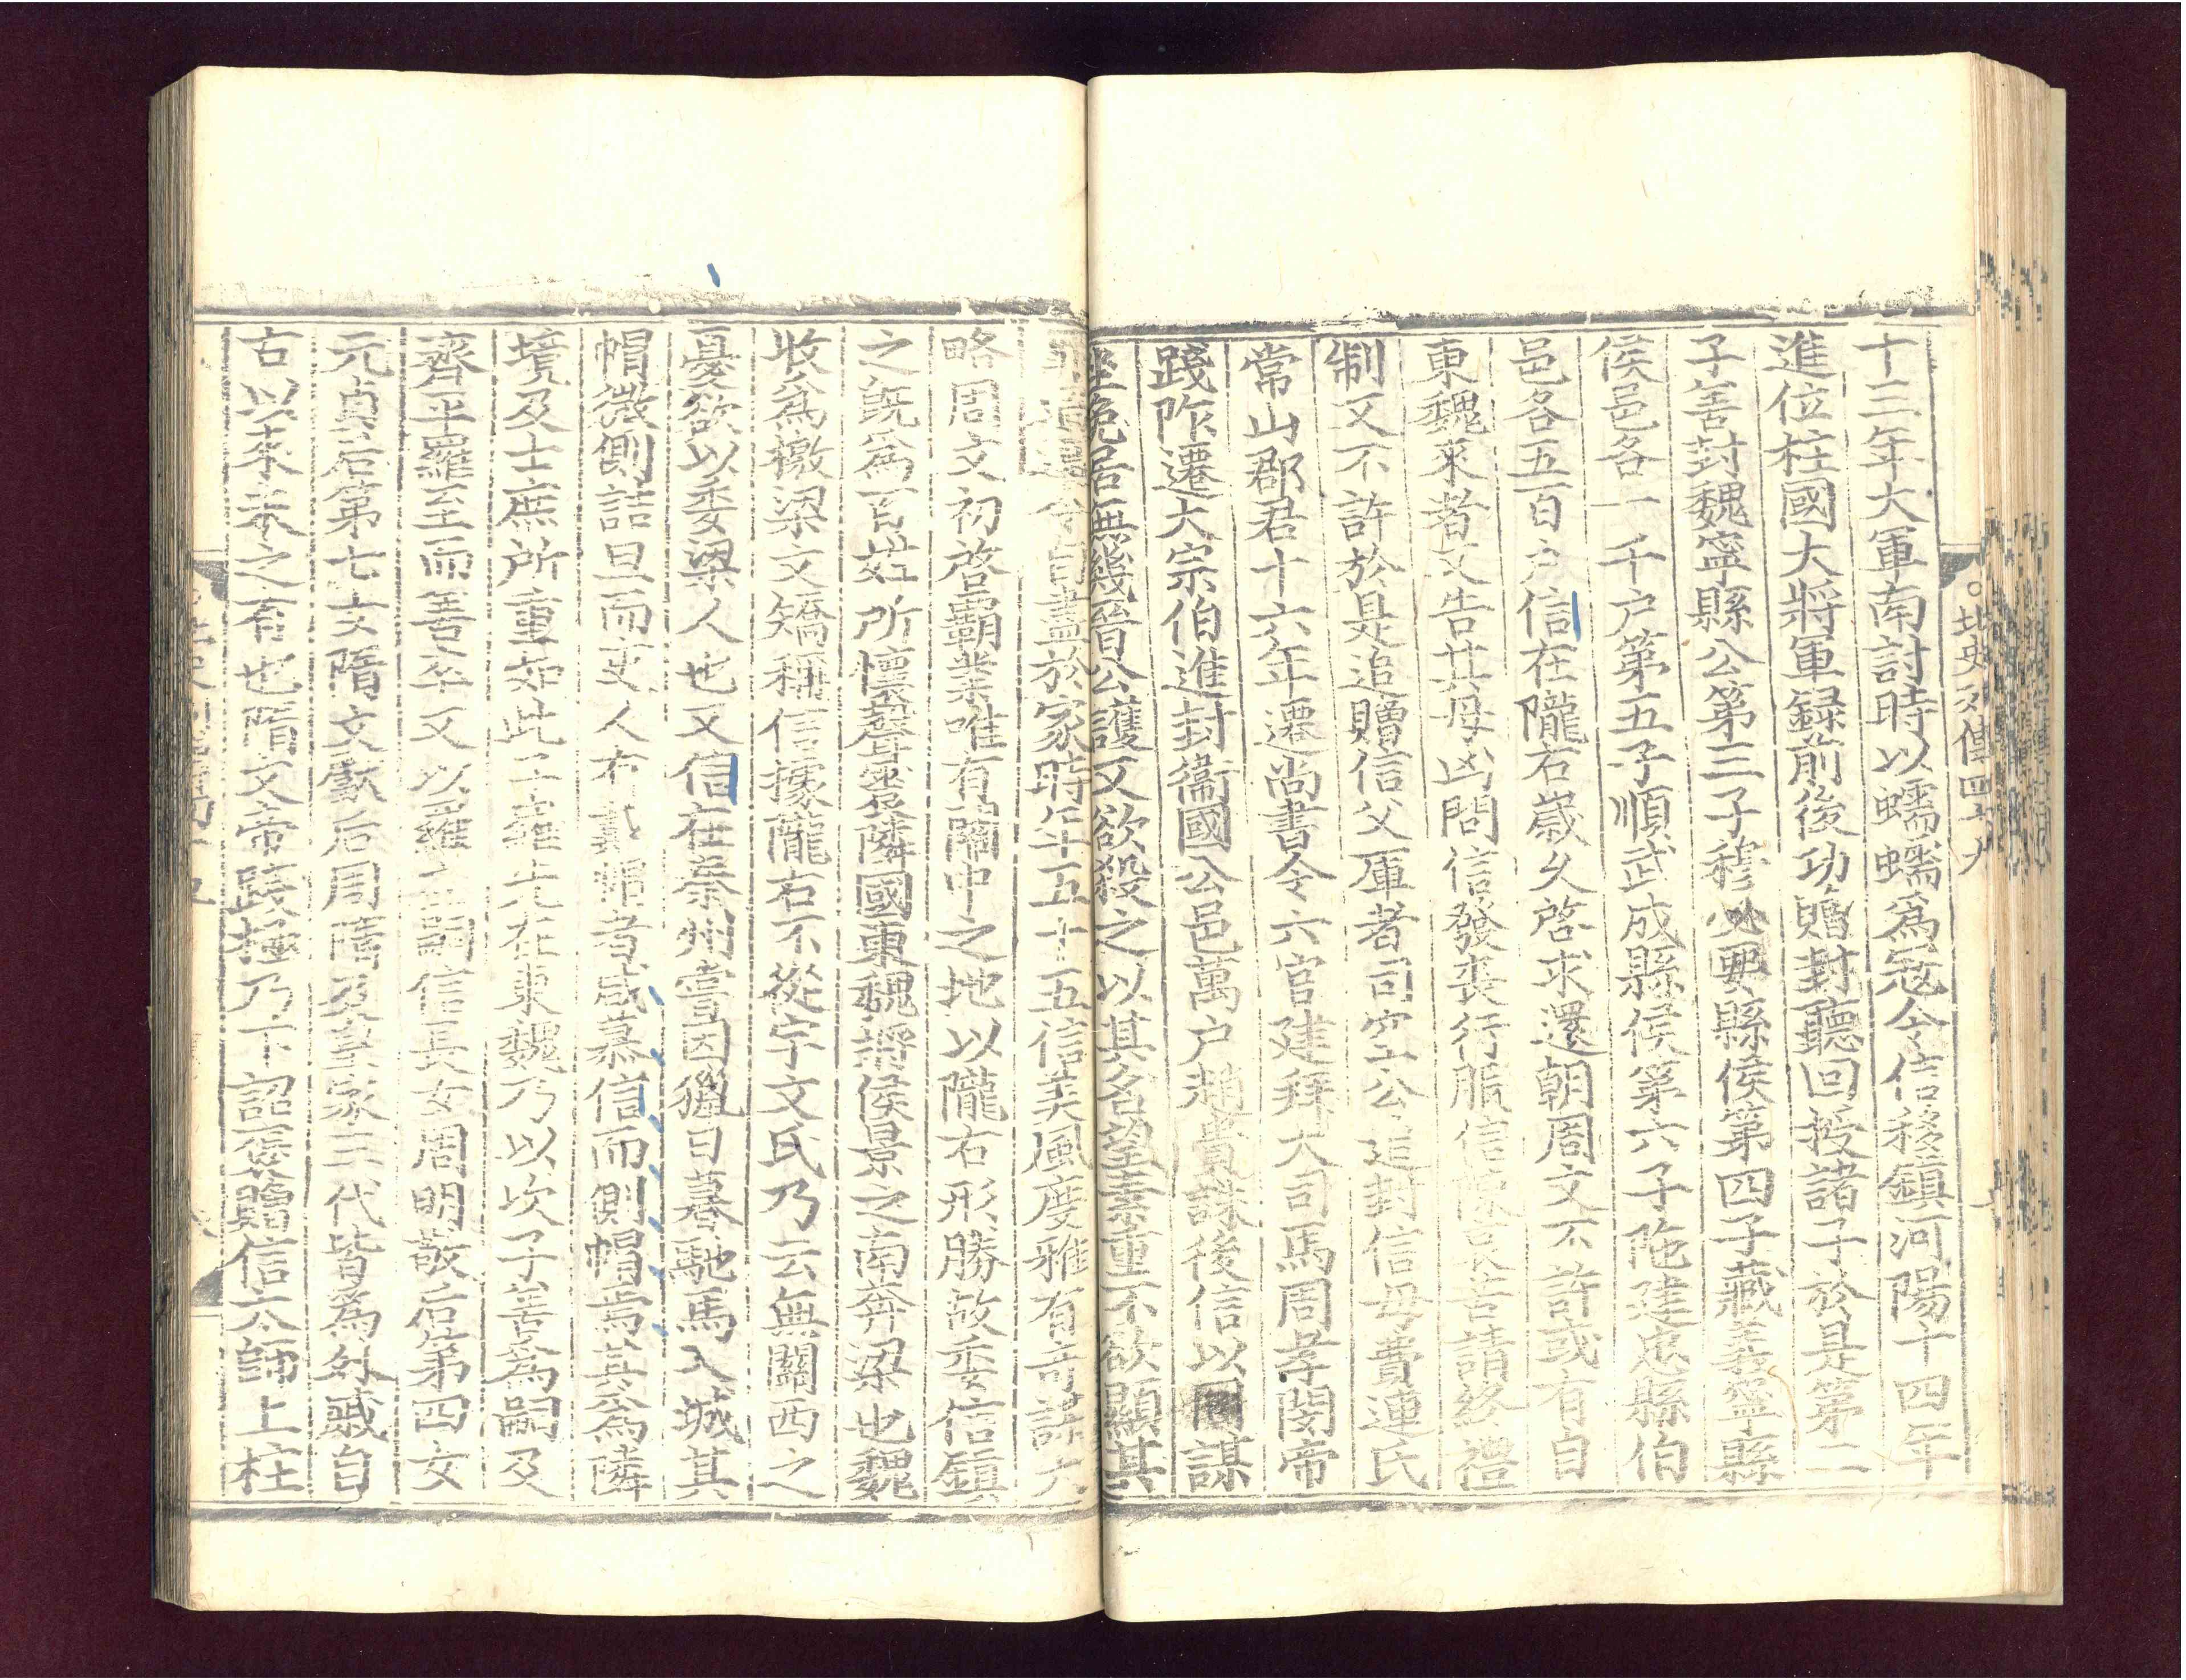 十三年大軍南討時以蠕蠕爲寇令信移鎮河陽十四年
進位柱國大將軍録前後功贈封聽回授諸子於是第二
子善封魏寧縣公第三子穆必要縣侯第四子藏義寧縣
侯邑各一千户第五子順武成縣侯第六子陁建忠縣伯
邑各五百户信在隴右歲久啓求還朝周文不許或有自
東魏來者又告其母凶問信發喪行服信陳哀苦請終禮
制又不許於是追贈信父厙者司空公追封信母費連氏
常山郡君十六年遷尚書令六官建拜大司馬周孝閔帝
踐阼遷大宗伯進封衞國公邑萬户趙貴誅後信以同謀
坐免居無幾晉公護又欲殺之以其名望素重不欲顯其
令自盡於家時年五十五信美風度雅有奇謀大
略周文初啓霸業唯有關中之地以隴右形勝故委信鎮
之既爲百姓所懷聲震隣國東魏將侯景之南奔梁也魏
收爲檄梁文矯稱信據隴右不從宇文氏乃云無關西之
憂欲以委梁人也又信在秦州嘗因獵日暮馳馬入城其
帽微側詰旦而吏人有戴帽者咸慕信而側帽焉其爲隣
境及士庶所重如此子羅先在東魏乃以次子善爲嗣及
齊平羅至而善卒又以羅爲嗣信長女周明敬后第四女
元貞后第七女隋文獻后周隋及皇家三代皆爲外戚自
古以來未之有也隋文帝踐極乃下詔襃贈信太師上柱
北史列傳四十九